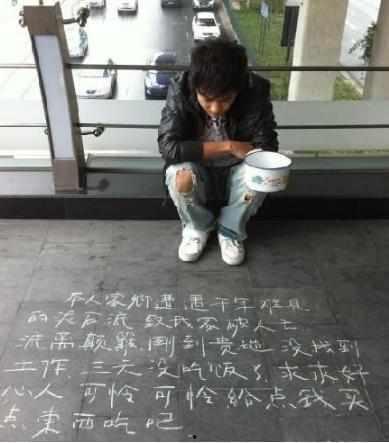 本人家鄉遭遇千年难見
的泥石流 致我家破人亡
流离颠簸 剛到贵地 没找到
工作 三天没吃饭了 求求好
心人 可怜可怜给点钱买
点東西吃吧